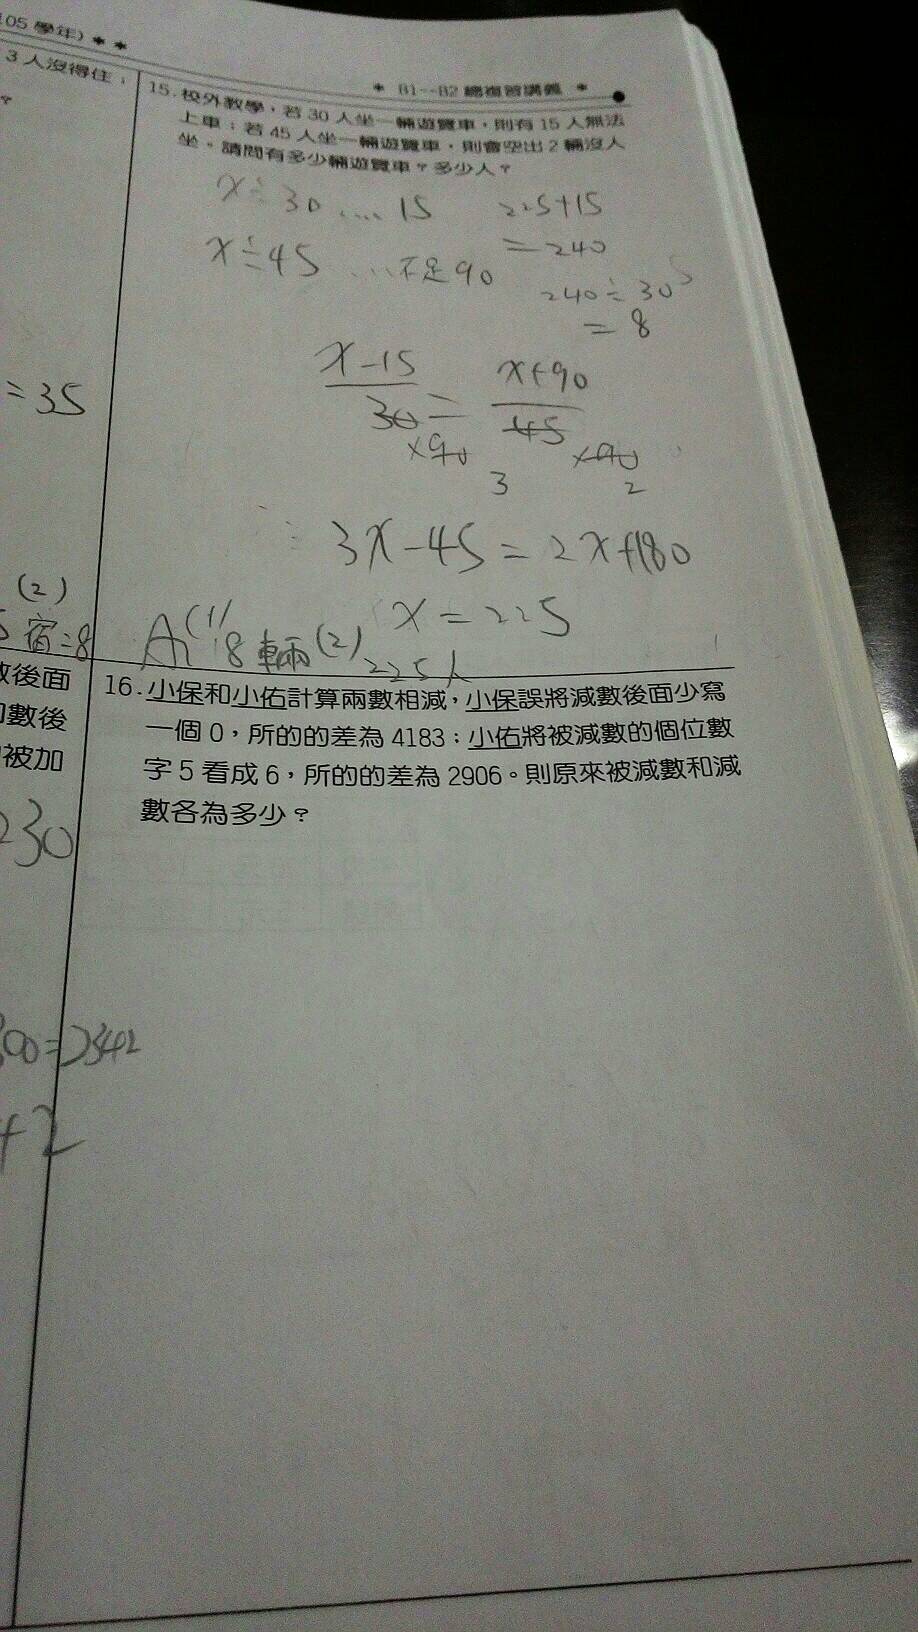 05 學年) ＊＊
＊ B1--B2 總複習講義 ＊
3 人沒得住，
?
= 35
(2)
宿=8
後面
數後
被加
230
00=2342
42
15. 校外教學，若 30 人坐一輛遊覽車，則有 15 人無法
上車；若 45 人坐一輛遊覽車，則會空出 2 輛沒人
坐。請問有多少輛遊覽車？多少人？
x÷30 .... 15
225+15
x÷45 ...不足90
=240
240÷30
=8
x-15
30
=
x+90
45
×90
×90
3
2
3x-45=2x+180
x=225
A: (1) 8輛 (2) 225人
16. 小保和小佑計算兩數相減，小保誤將減數後面少寫
一個 0，所的的差為 4183；小佑將被減數的個位數
字 5 看成 6，所的的差為 2906。則原來被減數和減
數各為多少？